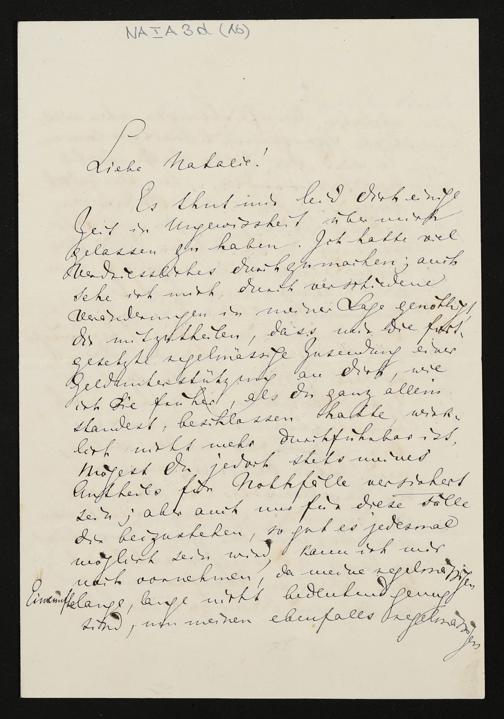 NA I A 3d (16)
Liebe Natalie!
Es thut mir leid dich einige
Zeit in Ungewissheit über mich
gelassen zu haben. Ich hatte viel
Verdriessliches durchzumachen; auch
sehe ich mich durch verschiedene
Veränderungen in meiner Lage genöthigt
dir mitzutheilen, dass mir die fort-
gesetzte regelmässige Zusendung einer
Geldunterstützung an dich, wie
ich sie früher, als du ganz allein
standest, beschlossen hatte, wirk-
lich nicht mehr durchführbar ist.
Mögest du jedoch stets meines
Antheils für Nothfälle versichert
sein; aber auch nur für diese Fälle
dir beizustehen, so gut es jedesmal
möglich sein wird, kann ich mir
noch vornehmen, da meine regelmässigen
Einkünfte lange, lange nicht bedeutend genug
sind, um meinen ebenfalls regelmässigen